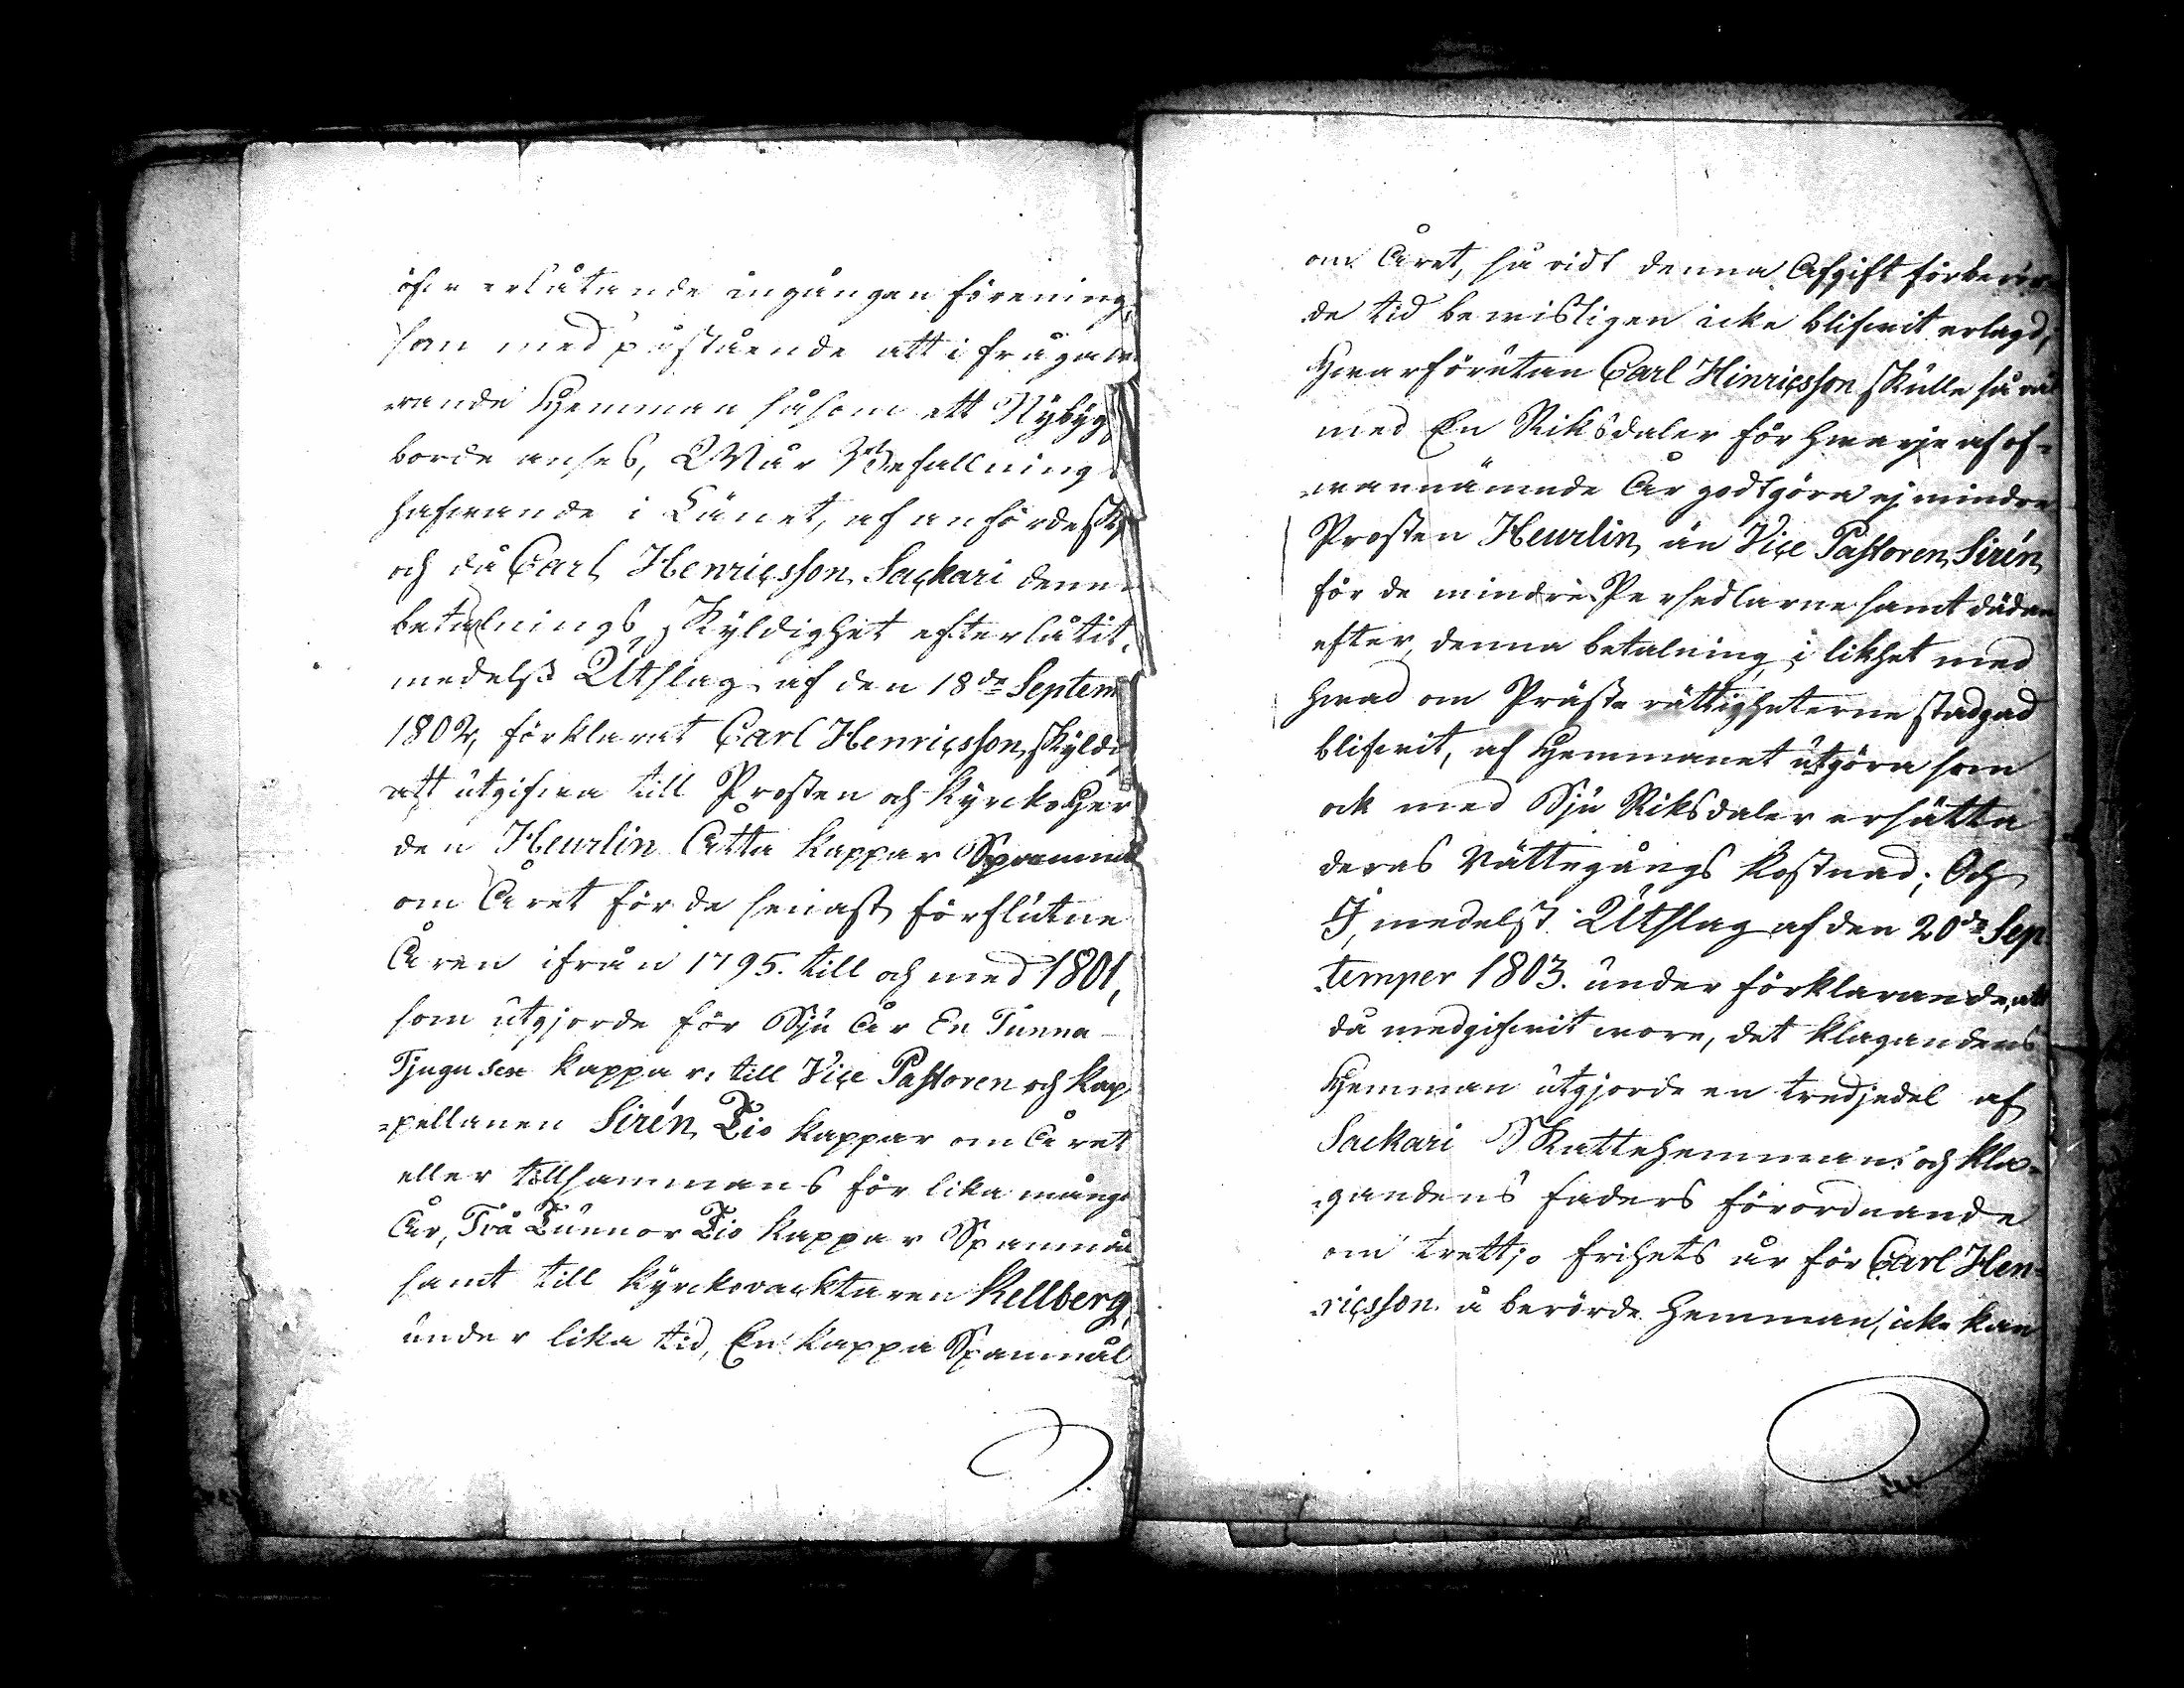 öfverlåtande ingången förening,
som med påstående att i fråga wa
rande Hemman såsom ett Nybyg
borde anses, Wår Befallnings
hafwande i Länet, af anförde Sk
och då Carl Henricsson Sackari denna
betalnings Skyldighet efterlåtit,
medelst Utslag af den 18de Septem
1802, förklarat Carl Henricsson Skyldig
att utgifwa till Prosten och Kyrckoher
den Heurlin Åtta kappar Spannmål
om Året för de senast förflutne
Åren ifrån 1795. till och med 1801,
som utgjorde för Sju År En Tunna
Tjugusex kappar; till Vice Pastoren och Kap
=pellanen Sirén Tio kappar om Året
eller tillsammans för lika många
År, Två Tunnor Tio kappar Spanmål
samt till Kyrckovacktaren Kellberg,
under lika tid, En kappa Spanmål
om Året, så vidt denna Afgift förberör-
de tid bewisligen icke blifwit erlagd,
Hwarförutan Carl Hinricsson Skulle så wäl
med En Riksdaler för hwarje af of-
wannämnde År godtgöra ej mindre
Prosten Heurlin, än Vice Pastoren Sirén
för de mindre Persedlarne samt dädan
efter denna betalning i likhet med
hwad om Präste rättigheterne stadgad
blifwit, af Hemmanet utgöra som
ock med Sju Riksdaler ersätta
deras Rättegångs kostnad; Och
I, medelst Utslag af den 20de Sep
temper 1803. under förklarande, att
då medgifwit wore, det klagandens
Hemman utgjorde en tredjedel af
Sackari Skattehemman och kla-
gandens faders förordnande
om trettjo frihets år för Carl Hen-
ricsson å berörde Hemman, icke kan